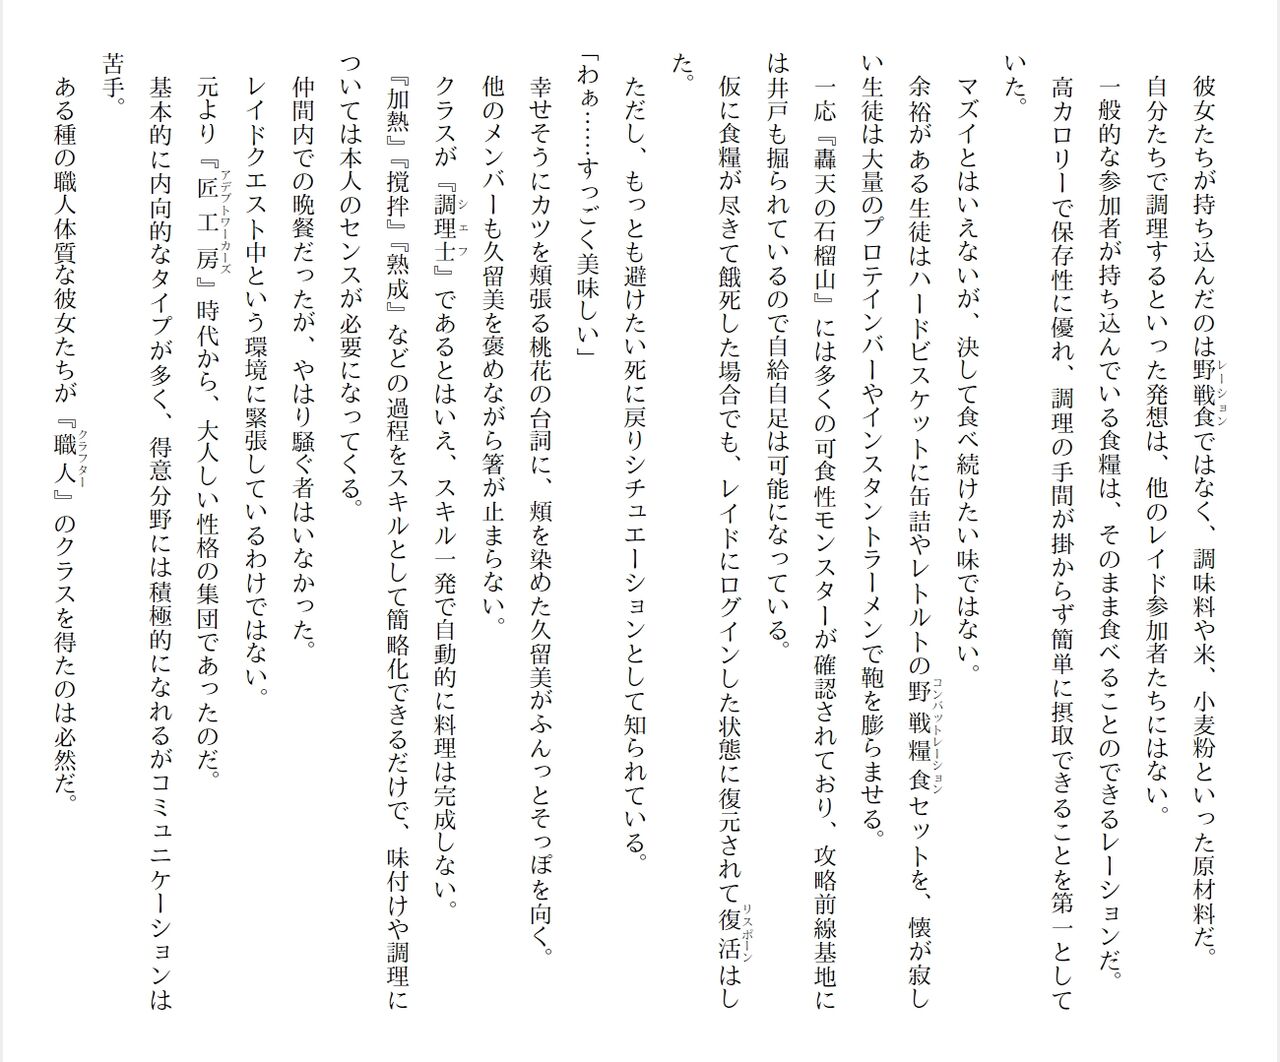 彼女たちが持ち込んだのは野戦食レーションではなく、調味料や米、小麦粉といった原材料だ。
自分たちで調理するといった発想は、他のレイド参加者たちにはない。
一般的な参加者が持ち込んでいる食糧は、そのまま食べることのできるレーションだ。
高カロリーで保存性に優れ、調理の手間が掛からず簡単に摂取できることを第一として
いた。
マズイとはいえないが、決して食べ続けたい味ではない。
余裕がある生徒はハードビスケットに缶詰やレトルトの野戦糧食コンバットレーションセットを、懐が寂し
い生徒は大量のプロテインバーやインスタントラーメンで鞄を膨らませる。
一応『轟天の石榴山』には多くの可食性モンスターが確認されており、攻略前線基地に
は井戸も掘られているので自給自足は可能になっている。
仮に食糧が尽きて餓死した場合でも、レイドにログインした状態に復元されて復活リスポーンはし
た。
ただし、もっとも避けたい死に戻りシチュエーションとして知られている。
「わぁ……すっごく美味しい」
幸せそうにカツを頬張る桃花の台詞に、頬を染めた久留美がふんっとそっぽを向く。
他のメンバーも久留美を褒めながら箸が止まらない。
クラスが『調理士シェフ』であるとはいえ、スキル一発で自動的に料理は完成しない。
『加熱』『撹拌』『熟成』などの過程をスキルとして簡略化できるだけで、味付けや調理に
ついては本人のセンスが必要になってくる。
仲間内での晩餐だったが、やはり騒ぐ者はいなかった。
レイドクエスト中という環境に緊張しているわけではない。
元より『匠工房アデプトワーカーズ』時代から、大人しい性格の集団であったのだ。
基本的に内向的なタイプが多く、得意分野には積極的になれるがコミュニケーションは
苦手。
ある種の職人体質な彼女たちが『職人クラフター』のクラスを得たのは必然だ。